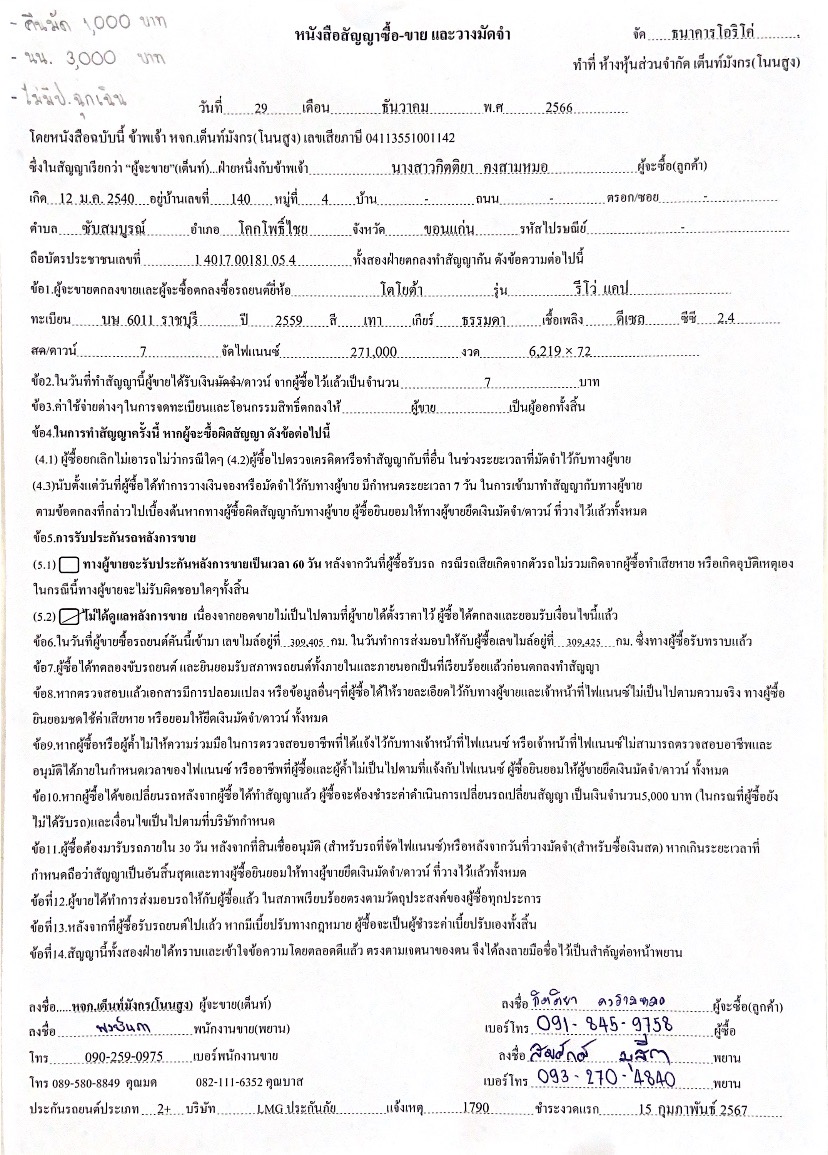 - คืนมัด 1,000 บาท
- นน. 3,000 บาท
- ไม่มีป.ฉุกเฉิน
หนังสือสัญญาซื้อ-ขาย และวางมัดจำ
จัด ธนาคารโอริโค่
ทำที่ ห้างหุ้นส่วนจำกัด เต็นท์มังกร(โนนสูง)
วันที่ 29 เดือน ธันวาคม พ.ศ 2566
โดยหนังสือฉบับนี้ ข้าพเจ้า หจก.เต็นท์มังกร(โนนสูง) เลขเสียภาษี 04113551001142
ซึ่งในสัญญาเรียกว่า "ผู้จะขาย"(เต็นท์)...ฝ่ายหนึ่งกับข้าพเจ้า นางสาวกิตติยา คงสามหมอ ผู้จะซื้อ(ลูกค้า)
เกิด 12 ม.ค. 2540 อยู่บ้านเลขที่ 140 หมู่ที่ 4 บ้าน - ถนน - ตรอก/ซอย -
ตำบล ซับสมบูรณ์ อำเภอ โคกโพธิ์ไชย จังหวัด ขอนแก่น รหัสไปรษณีย์ -
ถือบัตรประชาชนเลขที่ 1 4017 00181 05 4 ทั้งสองฝ่ายตกลงทำสัญญากัน ดังข้อความต่อไปนี้
ข้อ1.ผู้จะขายตกลงขายและผู้จะซื้อตกลงซื้อรถยนต์ยี่ห้อ โตโยต้า รุ่น รีโว่ แคป
ทะเบียน บษ 6011 ราชบุรี ปี 2559 สี เทา เกียร์ ธรรมดา เชื้อเพลิง ดีเซล ซีซี 2.4
สด/ดาวน์ 7 จัดไฟแนนซ์ 271,000 งวด 6,219 × 72
ข้อ2.ในวันที่ทำสัญญานี้ผู้ขายได้รับเงินมัดจำ/ดาวน์ จากผู้ซื้อไว้แล้วเป็นจำนวน 7 บาท
ข้อ3.ค่าใช้จ่ายต่างๆในการจดทะเบียนและโอนกรรมสิทธิ์ตกลงให้ ผู้ขาย เป็นผู้ออกทั้งสิ้น
ข้อ4.ในการทำสัญญาครั้งนี้ หากผู้จะซื้อผิดสัญญา ดังข้อต่อไปนี้
(4.1) ผู้ซื้อยกเลิกไม่เอารถไม่ว่ากรณีใดๆ (4.2)ผู้ซื้อไปตรวจเครดิตหรือทำสัญญากับที่อื่น ในช่วงระยะเวลาที่มัดจำไว้กับทางผู้ขาย
(4.3)นับตั้งแต่วันที่ผู้ซื้อได้ทำการวางเงินจองหรือมัดจำไว้กับทางผู้ขาย มีกำหนดระยะเวลา 7 วัน ในการเข้ามาทำสัญญากับทางผู้ขาย
ตามข้อตกลงที่กล่าวไปเบื้องต้นหากทางผู้ซื้อผิดสัญญากับทางผู้ขาย ผู้ซื้อยินยอมให้ทางผู้ขายยึดเงินมัดจำ/ดาวน์ ที่วางไว้แล้วทั้งหมด
ข้อ5.การรับประกันรถหลังการขาย
(5.1) ทางผู้ขายจะรับประกันหลังการขายเป็นเวลา 60 วัน หลังจากวันที่ผู้ซื้อรับรถ กรณีรถเสียเกิดจากตัวรถไม่รวมเกิดจากผู้ซื้อทำเสียหาย หรือเกิดอุบัติเหตุเอง
ในกรณีนี้ทางผู้ขายจะไม่รับผิดชอบใดๆทั้งสิ้น
(5.2) ไม่ได้ดูแลหลังการขาย เนื่องจากยอดขายไม่เป็นไปตามที่ผู้ขายได้ตั้งราคาไว้ ผู้ซื้อได้ตกลงและยอมรับเงื่อนไขนี้แล้ว
ข้อ6.ในวันที่ผู้ขายซื้อรถยนต์คันนี้เข้ามา เลขไมล์อยู่ที่ 309,405 กม. ในวันทำการส่งมอบให้กับผู้ซื้อเลขไมล์อยู่ที่ 309,425 กม. ซึ่งทางผู้ซื้อรับทราบแล้ว
ข้อ7.ผู้ซื้อได้ทดลองขับรถยนต์ และยินยอมรับสภาพรถยนต์ทั้งภายในและภายนอกเป็นที่เรียบร้อยแล้วก่อนตกลงทำสัญญา
ข้อ8.หากตรวจสอบแล้วเอกสารมีการปลอมแปลง หรือข้อมูลอื่นๆที่ผู้ซื้อได้ให้รายละเอียดไว้กับทางผู้ขายและเจ้าหน้าที่ไฟแนนซ์ไม่เป็นไปตามความจริง ทางผู้ซื้อ
ยินยอมชดใช้ค่าเสียหาย หรือยอมให้ยึดเงินมัดจำ/ดาวน์ ทั้งหมด
ข้อ9.หากผู้ซื้อหรือผู้ค้ำไม่ให้ความร่วมมือในการตรวจสอบอาชีพที่ได้แจ้งไว้กับทางเจ้าหน้าที่ไฟแนนซ์ หรือเจ้าหน้าที่ไฟแนนซ์ไม่สามารถตรวจสอบอาชีพและ
อนุมัติได้ภายในกำหนดเวลาของไฟแนนซ์ หรืออาชีพที่ผู้ซื้อและผู้ค้ำไม่เป็นไปตามที่แจ้งกับไฟแนนซ์ ผู้ซื้อยินยอมให้ผู้ขายยึดเงินมัดจำ/ดาวน์ ทั้งหมด
ข้อ10.หากผู้ซื้อได้ขอเปลี่ยนรถหลังจากผู้ซื้อได้ทำสัญญาแล้ว ผู้ซื้อจะต้องชำระค่าดำเนินการเปลี่ยนรถเปลี่ยนสัญญา เป็นเงินจำนวน5,000 บาท (ในกรณที่ผู้ซื้อยัง
ไม่ได้รับรถ)และเงื่อนไขเป็นไปตามที่บริษัทกำหนด
ข้อ11.ผู้ซื้อต้องมารับรถภายใน 30 วัน หลังจากที่สินเชื่ออนุมัติ (สำหรับรถที่จัดไฟแนนซ์)หรือหลังจากวันที่วางมัดจำ(สำหรับซื้อเงินสด) หากเกินระยะเวลาที่
กำหนดถือว่าสัญญาเป็นอันสิ้นสุดและทางผู้ซื้อยินยอมให้ทางผู้ขายยึดเงินมัดจำ/ดาวน์ ที่วางไว้แล้วทั้งหมด
ข้อที่12.ผู้ขายได้ทำการส่งมอบรถให้กับผู้ซื้อแล้ว ในสภาพเรียบร้อยตรงตามวัตถุประสงค์ของผู้ซื้อทุกประการ
ข้อที่13.หลังจากที่ผู้ซื้อรับรถยนต์ไปแล้ว หากมีเบี้ยปรับทางกฎหมาย ผู้ซื้อจะเป็นผู้ชำระค่าเบี้ยปรับเองทั้งสิ้น
ข้อที่14.สัญญานี้ทั้งสองฝ่ายได้ทราบและเข้าใจข้อความโดยตลอดดีแล้ว ตรงตามเจตนาของตน จึงได้ลงลายมือชื่อไว้เป็นสำคัญต่อหน้าพยาน
ลงชื่อ.....หจก.เต็นท์มังกร(โนนสูง) ผู้จะขาย(เต็นท์) ลงชื่อ กิตติยา คงสามหมอ ผู้จะซื้อ(ลูกค้า)
ลงชื่อ พนักงานขาย(พยาน) เบอร์โทร 091-845-9758 ผู้ซื้อ
โทร 090-259-0975 เบอร์พนักงานขาย ลงชื่อ พยาน
โทร 089-580-8849 คุณมด 082-111-6352 คุณบาส เบอร์โทร 093-270-4840 พยาน
ประกันรถยนต์ประเภท 2+ บริษัท LMG ประกันภัย แจ้งเหตุ 1790 ชำระงวดแรก 15 กุมภาพันธ์ 2567